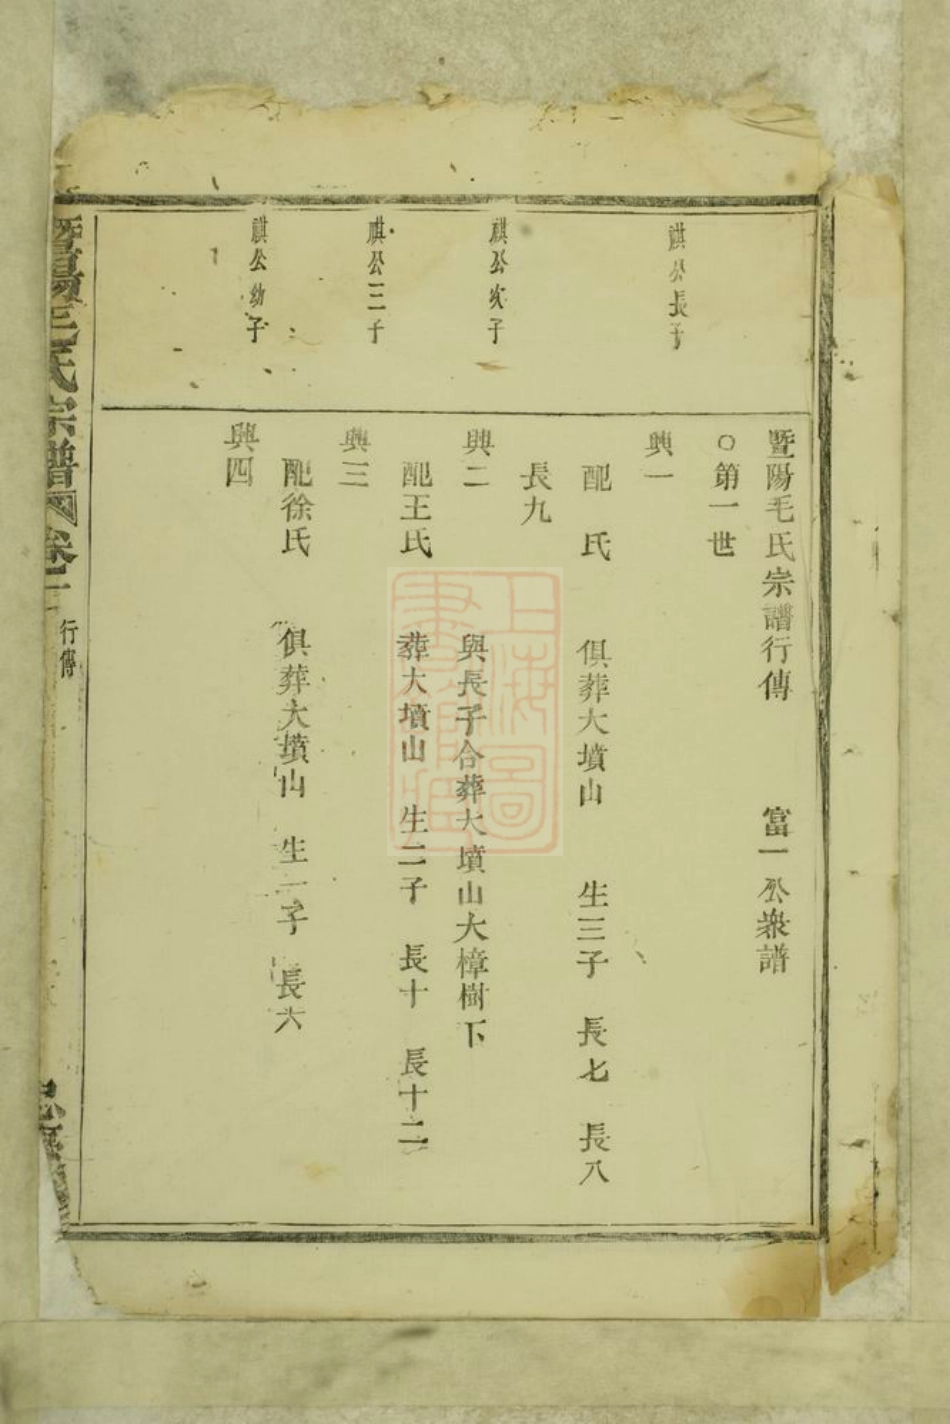 暨陽毛氏宗譜行傳 富一公衆譜
○第一世
祺公長子
興一
配 氏 俱葬大墳山 生三子 長七 長八
長九
祺公次子
興二 與長子合葬大墳山大樟樹下
配王氏 葬大墳山 生二子 長十 長十二
祺公三子
興三
配徐氏 俱葬大墳山 生一子 長六
祺公幼子
興四
暨陽毛氏宗譜 卷二 行傳
上海圖書館藏